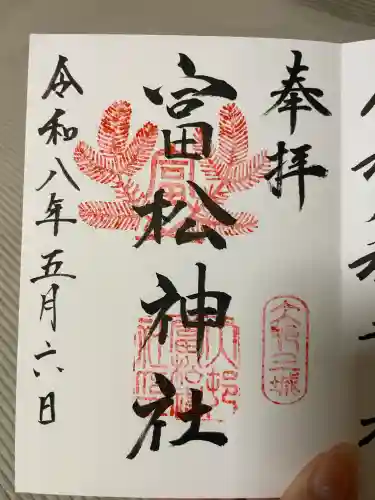 奉拝
富松神社
令和八年五月六日